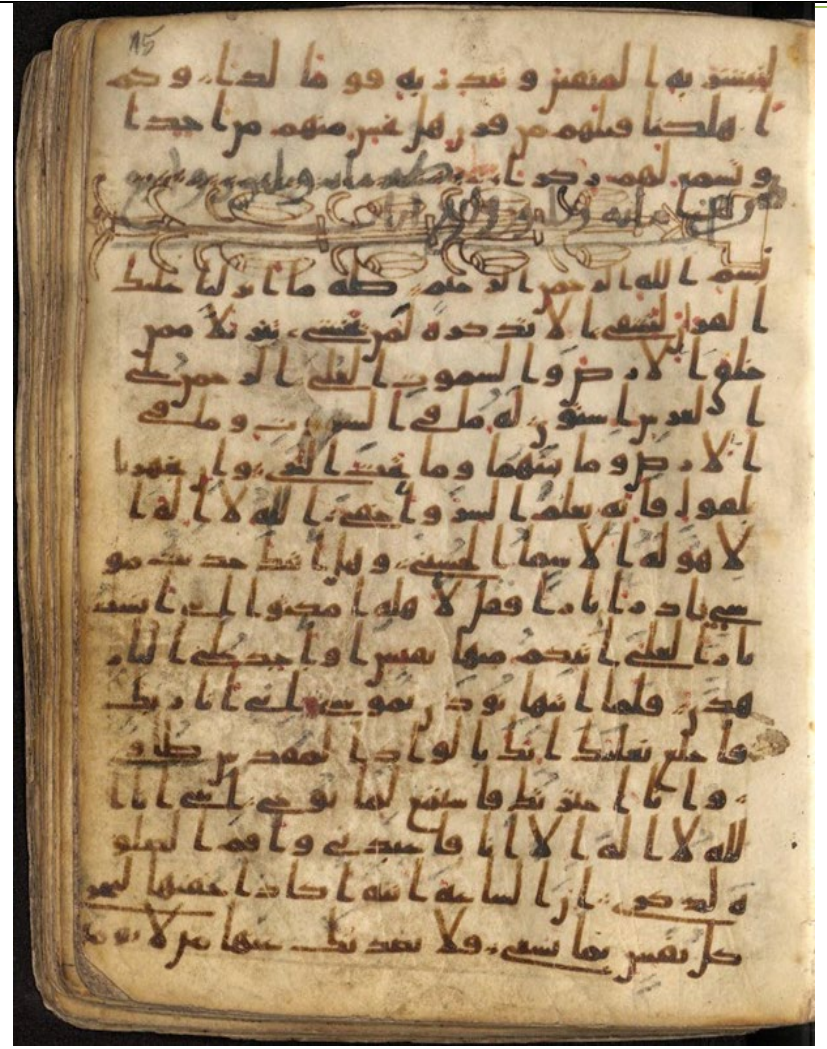 15
لتبشر به المتقين وتنذر به قوما لدا وكم
اهلكنا قبلهم من قرن هل تحس منهم من احد ا
و تسمع لهم ركزا
بسم الله الرحمن الرحيم طه ما انزلنا عليك
القران لتشقى الا تذكرة لمن يخشى تنزيلا ممن
خلق الارض والسموت العلى الرحمن على
العرش استوى له ما فى السموت وما فى
الارض وما بينهما وما تحت الثرى وان تجهر با
لقول فانه يعلم السر واخفى الله لا اله ا
لا هو له الاسما الحسنى وهل اتيك حديث مو
سى اذ را نارا فقال لاهله امكثوا انى انست
نارا لعلى اتيكم منها بقبس او اجد على النار
هدى فلما اتيها نودى يموسى انى انا ربك
فاخلع نعليك انك بالواد المقدس طوى
وانا اخترتك فاستمع لما يوحى اننى انا ا
لله لا اله الا انا فاعبدنى واقم الصلو
ة لذكرى ان الساعة اتية اكاد اخفيها لتجزى
كل نفس بما تسعى فلا يصدنك عنها من لا يوم